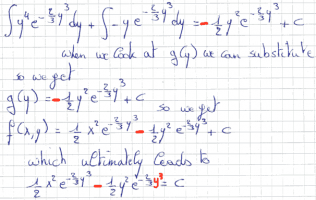 ∫y⁴e^(-2/3 y³) dy + ∫-y e^(-2/3 y³) dy = -1/2 y² e^(-2/3 y³) + c
when we look at g(y) we can substitute
so we get
g(y) = -1/2 y² e^(-2/3 y³) + c
so we get
f(x,y) = 1/2 x² e^(-2/3 y³) - 1/2 y² e^(-2/3 y³) + c
which ultimately leads to
1/2 x² e^(-2/3 y³) - 1/2 y² e^(-2/3 y³) = c